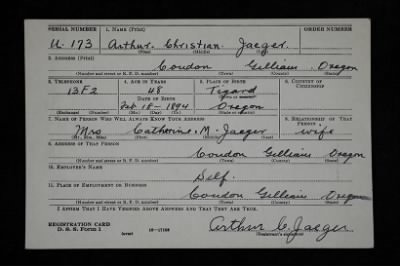 SERIAL NUMBER 1. NAME (Print) ORDER NUMBER
U. 173 Arthur. Christian. Jaeger.
(First) (Middle) (Last)
2. ADDRESS (Print)
Condon Gilliam. Oregon
(Number and street or R. F. D. number) (Town) (County) (State)
3. TELEPHONE 4. AGE IN YEARS 5. PLACE OF BIRTH 6. COUNTRY OF CITIZENSHIP
13F2 48 Tigard
DATE OF BIRTH (Town or county)
Feb 18 - 1894 Oregon
(Exchange) (Number) (Mo.) (Day) (Yr.) (State or country)
7. NAME OF PERSON WHO WILL ALWAYS KNOW YOUR ADDRESS 8. RELATIONSHIP OF THAT PERSON
Mrs Catherine. M. Jaeger wife
(Mr., Mrs., Miss) (First) (Middle) (Last)
9. ADDRESS OF THAT PERSON
Condon Gilliam. Oregon
(Number and street or R. F. D. number) (Town) (County) (State)
10. EMPLOYER'S NAME
Self.
11. PLACE OF EMPLOYMENT OR BUSINESS
Condon Gilliam. Oregon
(Number and street or R. F. D. number) (Town) (County) (State)
I AFFIRM THAT I HAVE VERIFIED ABOVE ANSWERS AND THAT THEY ARE TRUE.
REGISTRATION CARD
D. S. S. Form 1 (over) Arthur C. Jaeger
(Registrant's signature)